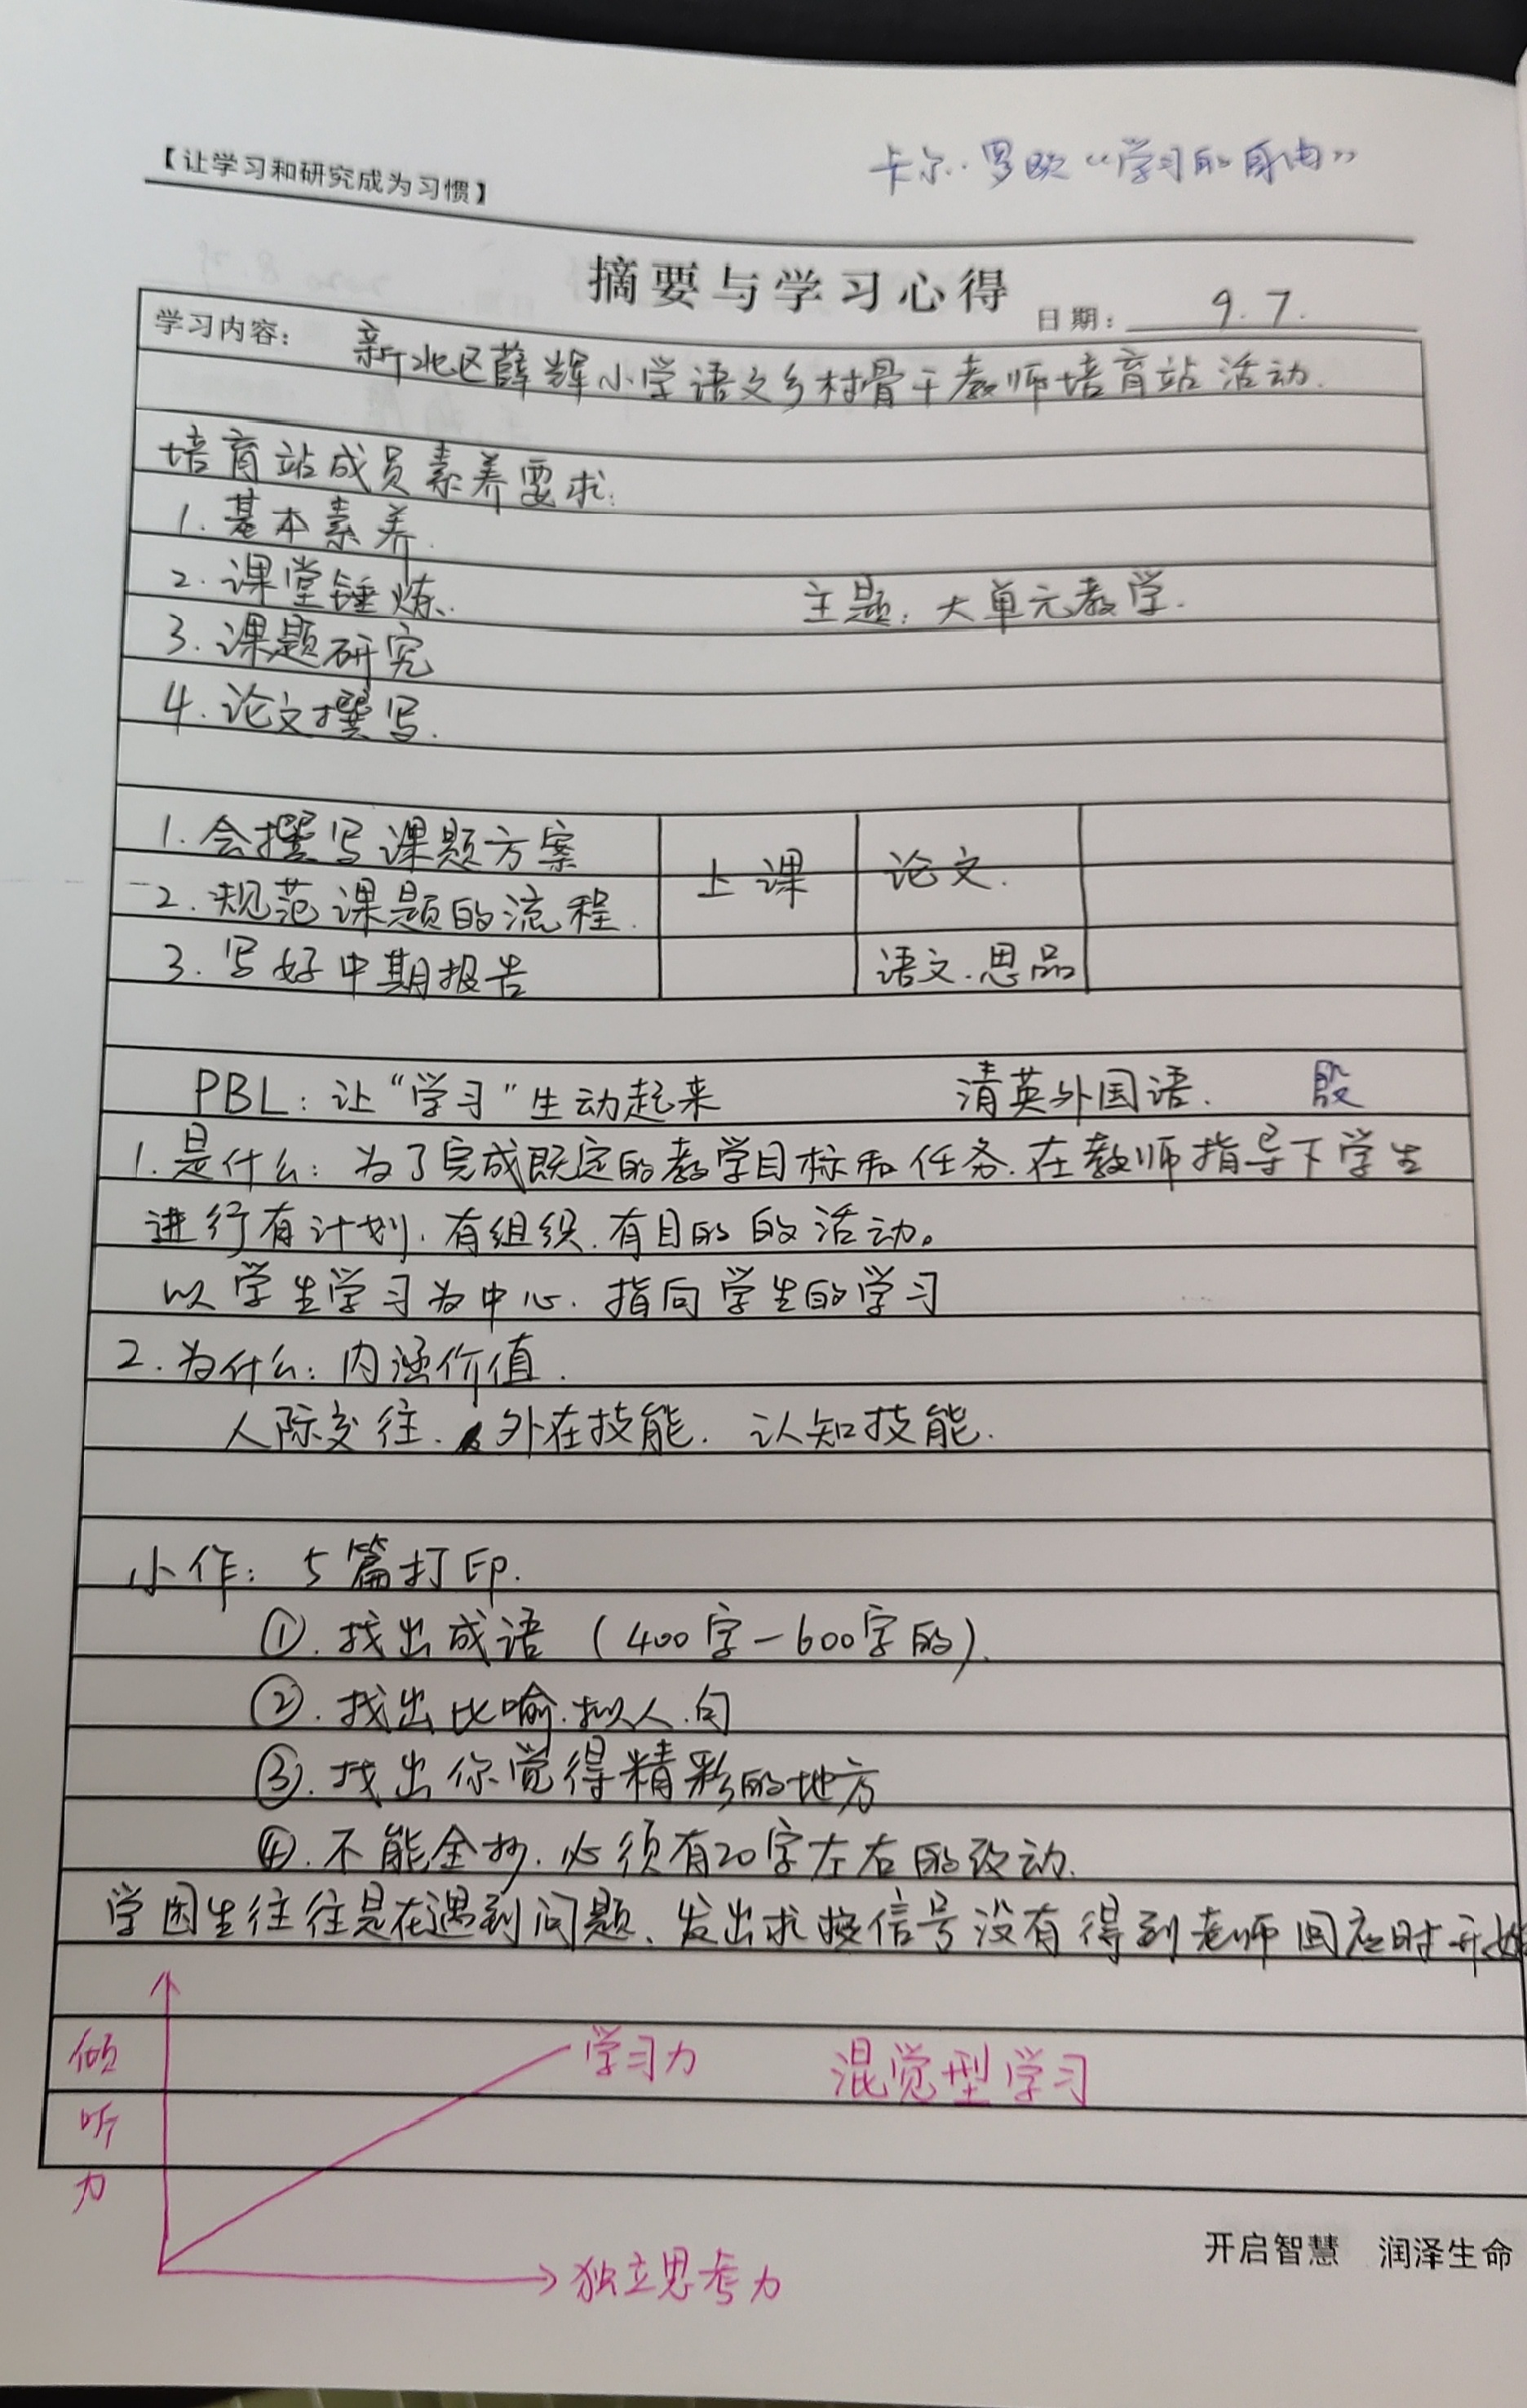 【让学习和研究成为习惯】
卡尔·罗 “学习的自由”
摘要与学习心得
日期： 9.7.
学习内容： 新北区薛辉小学语文乡村骨干教师培育站活动.
培育站成员素养要求:
1. 基本素养.
2. 课堂锤炼.
主题: 大单元教学.
3. 课题研究
4. 论文撰写.
1. 会撰写课题方案
上课
论文.
2. 规范课题的流程.
3. 写好中期报告
语文.思品
PBL: 让“学习”生动起来 清英外国语. 殷
1. 是什么: 为了完成既定的教学目标和任务.在教师指导下学生
进行有计划.有组织.有目的的活动。
以学生学习为中心. 指向学生的学习
2. 为什么: 内涵价值.
人际交往. 外在技能. 认知技能.
小作: 5篇打印.
①. 找出成语 (400字-600字的).
②. 找出比喻.拟人.句
③. 找出你觉得精彩的地方
④. 不能全抄.必须有20字左右的改动.
学困生往往是在遇到问题、发出求救信号没有得到老师回应时开始
倾听力
学习力
混觉型学习
独立思考力
开启智慧 润泽生命